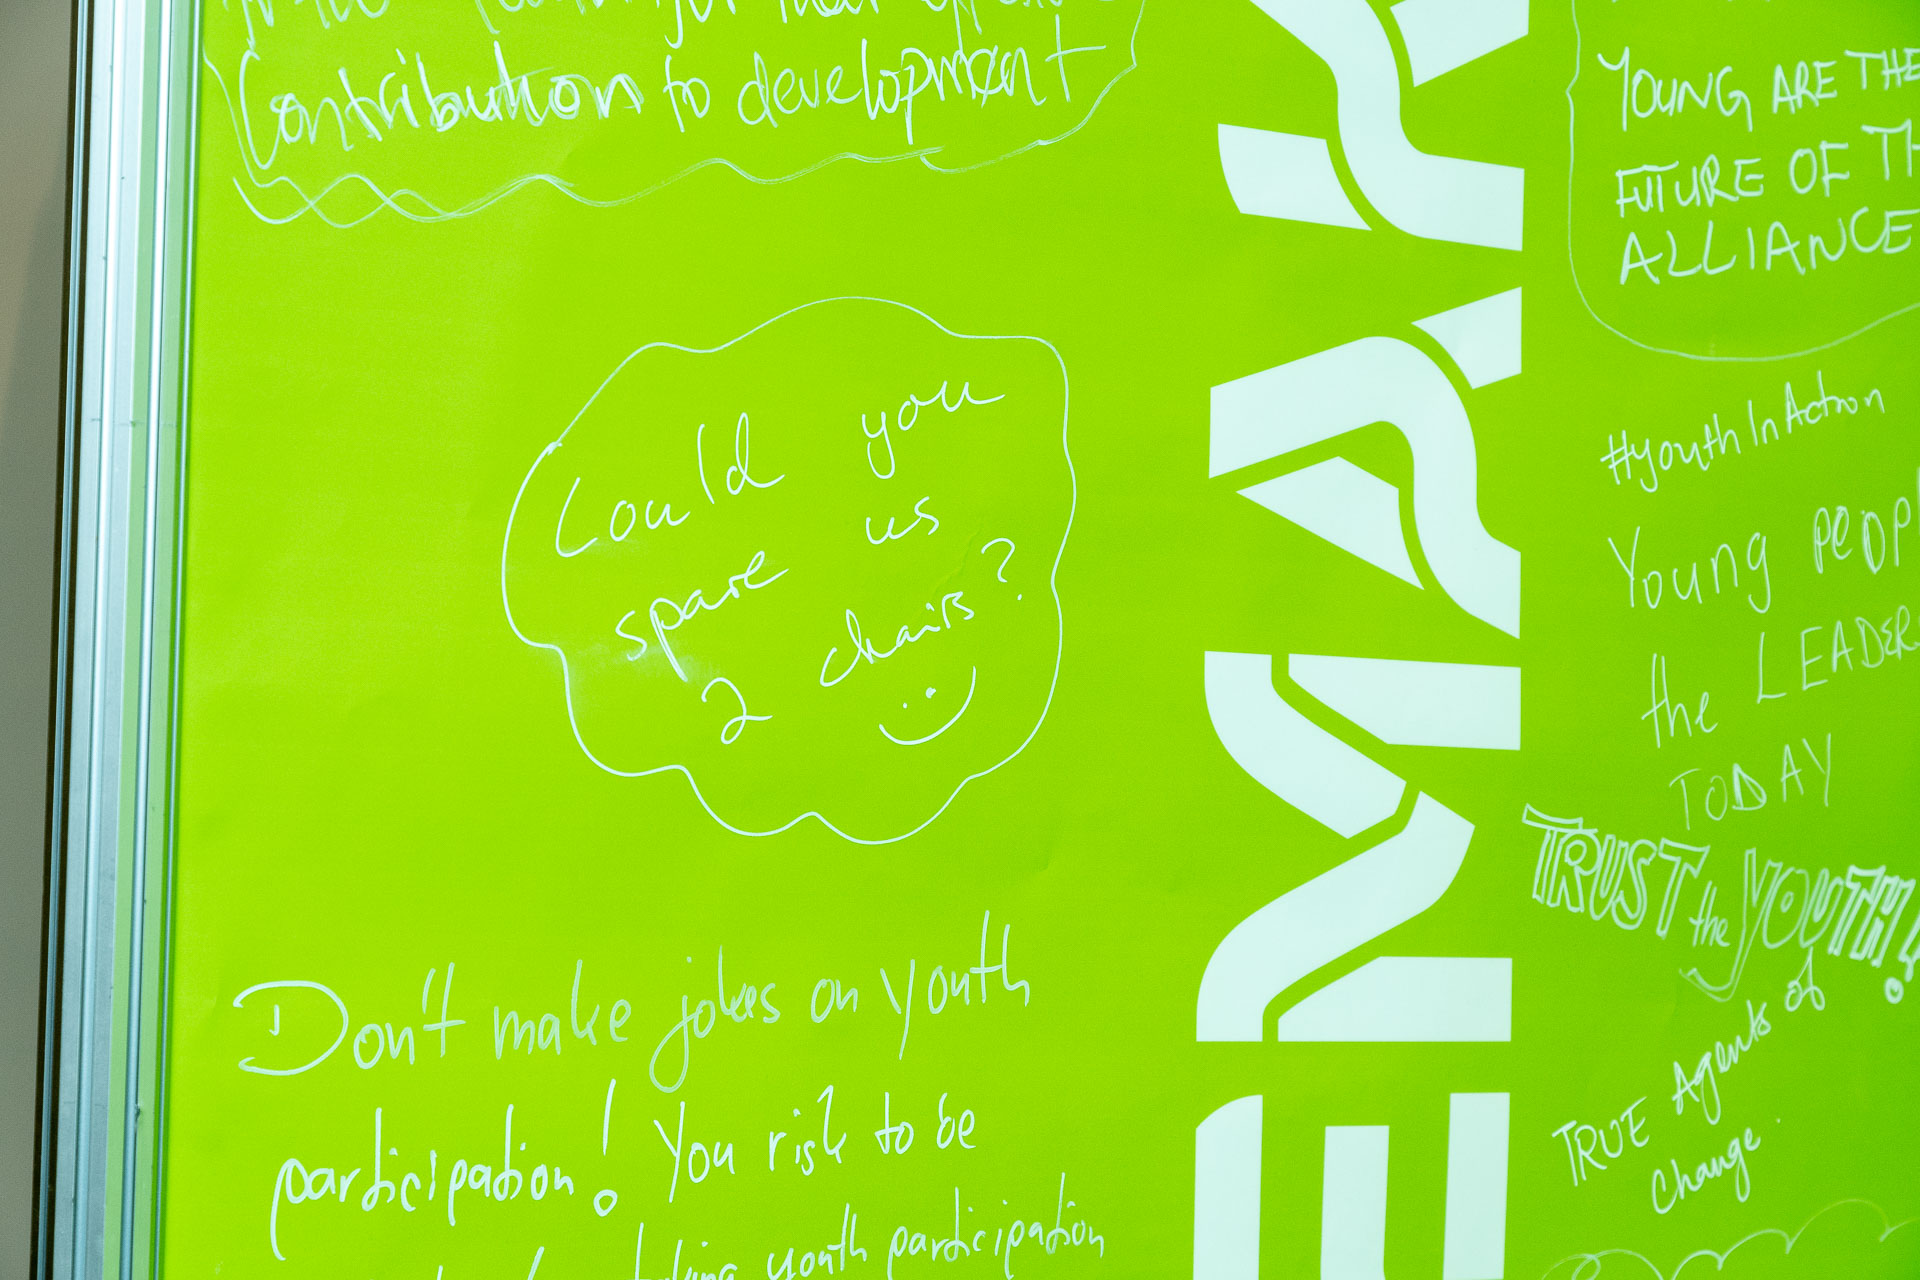 Contribution to development
Could you
spare us
2 chairs?
Don't make jokes on youth
participation! You risk to be
taking youth participation
YOUNG ARE THE
FUTURE OF TH
ALLIANCE
#youthInAction
Young PEOPL
the LEADER
TODAY
TRUST the YOUTH!
TRUE Agents of
Change.